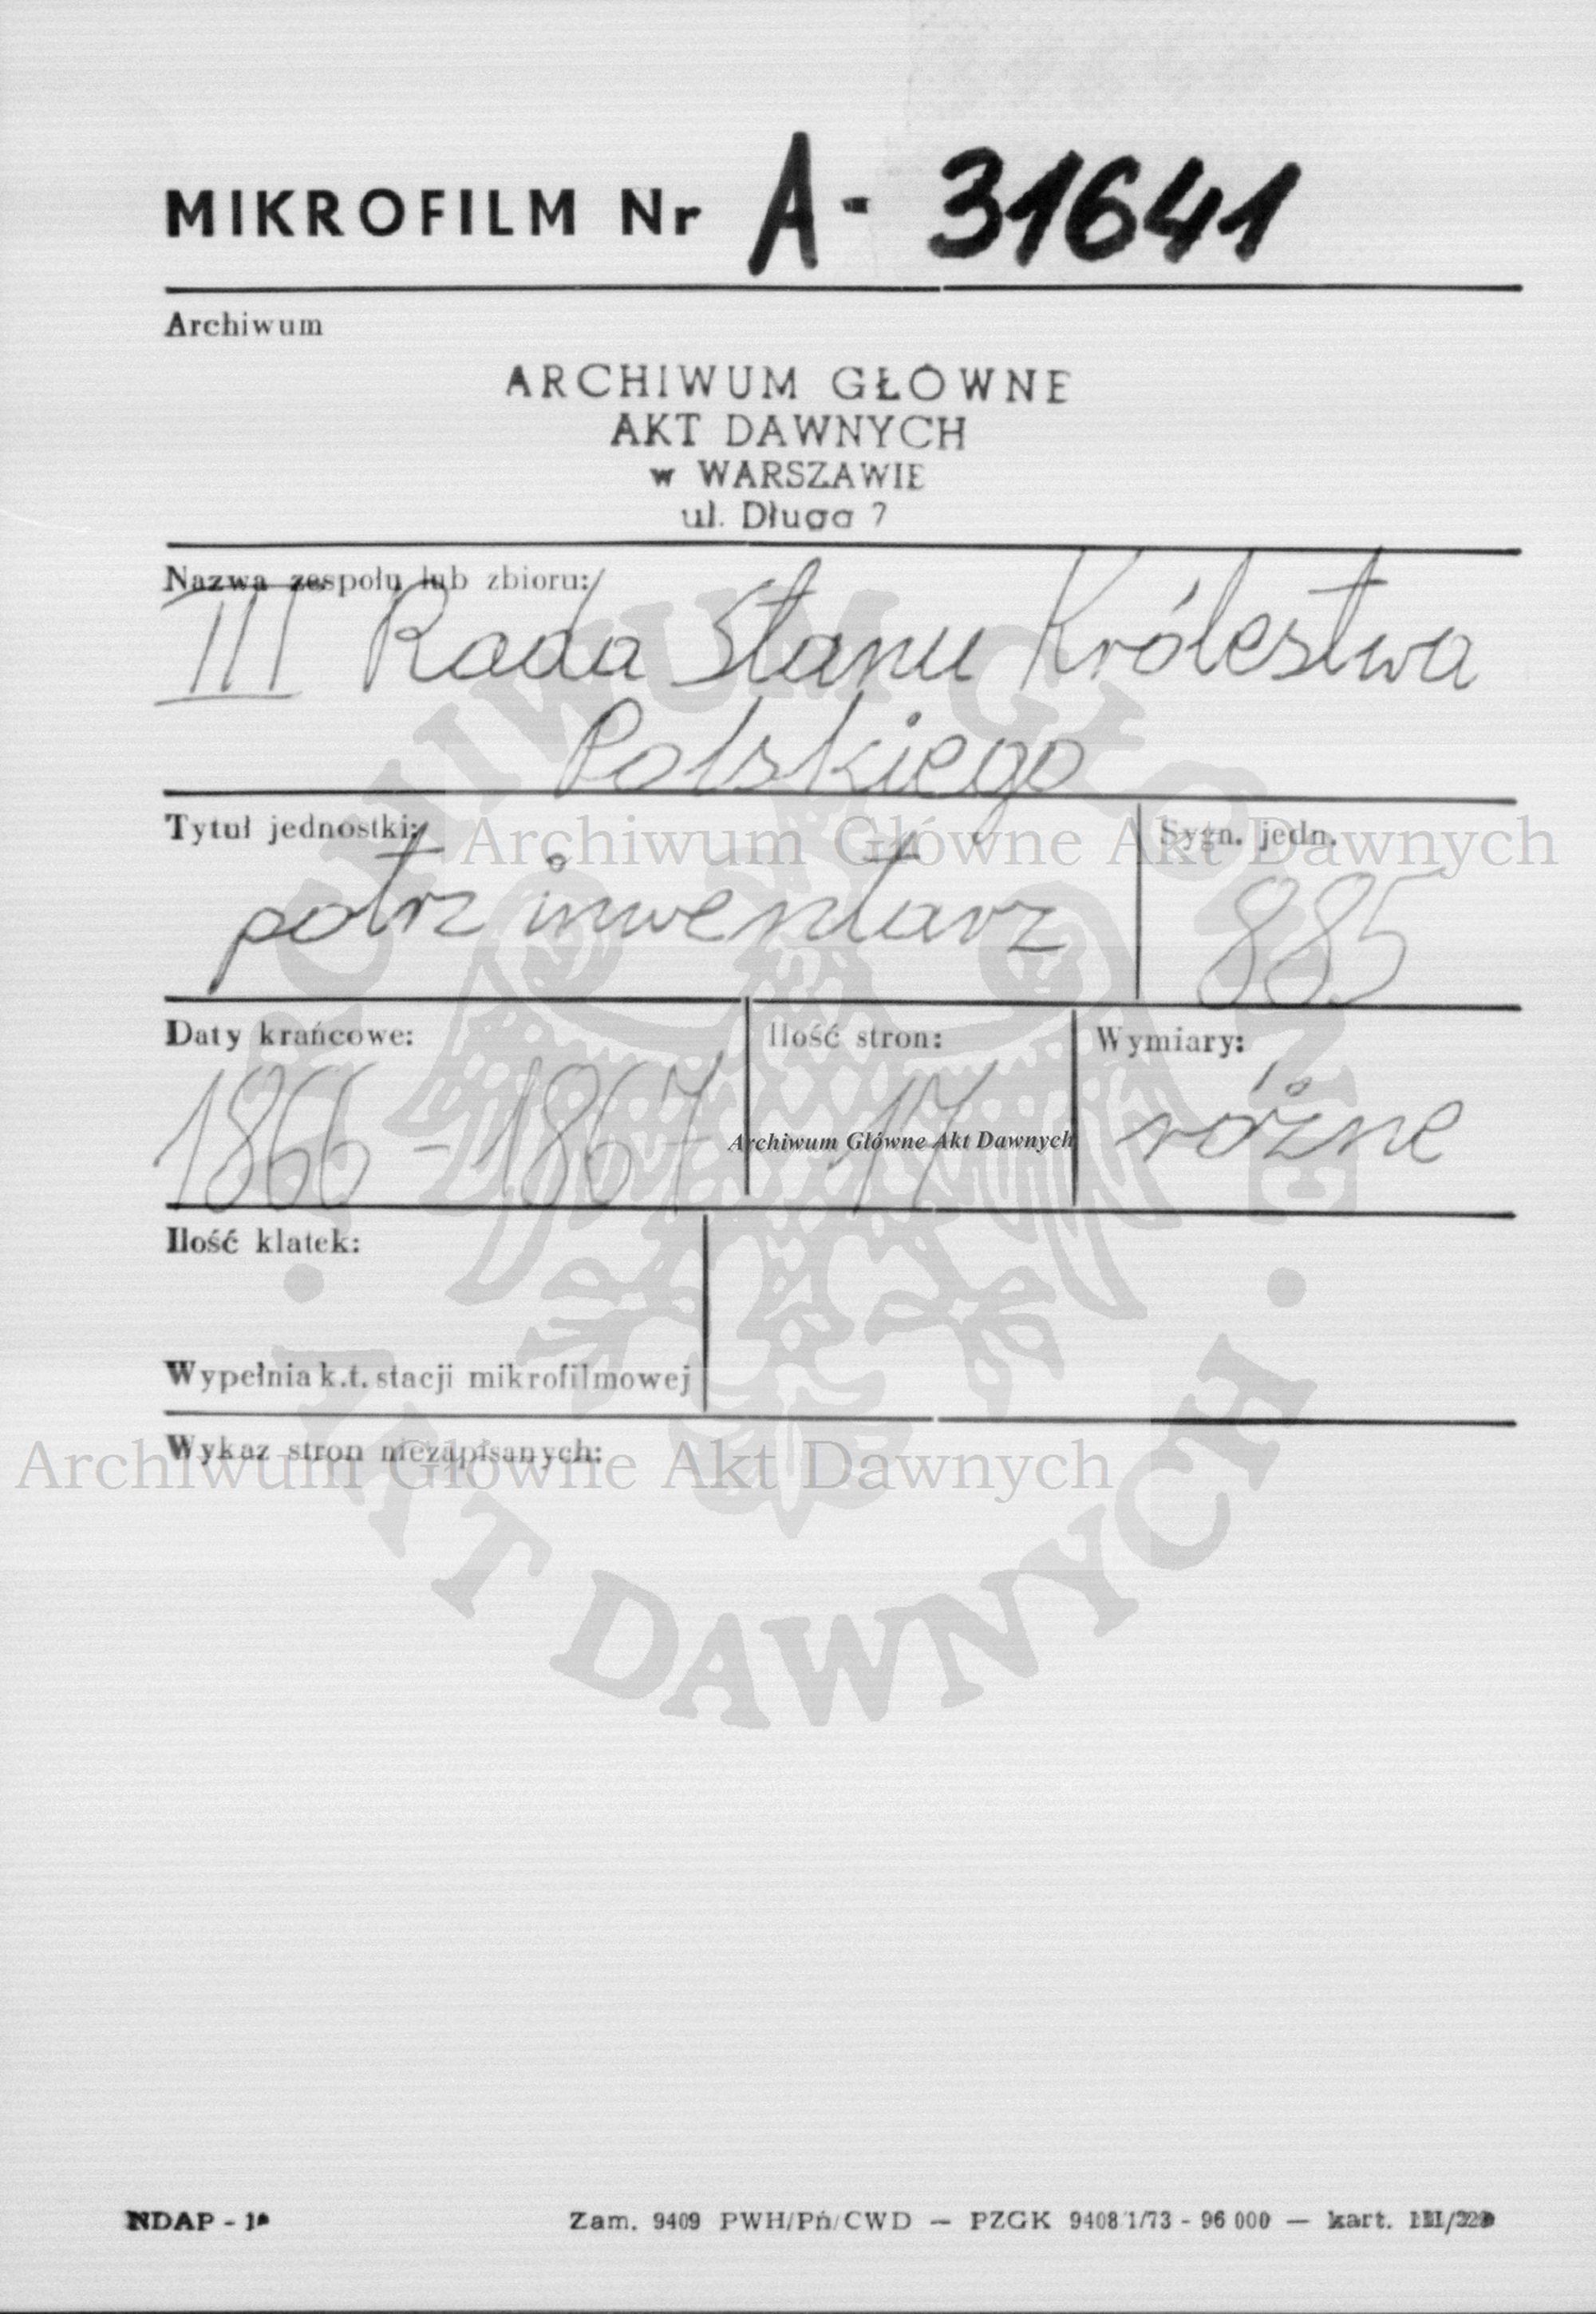 MIKROFILM Nr A - 31641
Archiwum
ARCHIWUM GŁÓWNE
AKT DAWNYCH
w WARSZAWIE
ul. Długa 7
Nazwa zespołu lub zbioru:
III Rada Stanu Królestwa
Polskiego
Tytuł jednostki:
Sygn. jedn.
Archiwum Główne Akt Dawnych
potrz inwentarz
885
Daty krańcowe:
Ilość stron:
Wymiary:
1866 - 1867
17
różne
Archiwum Główne Akt Dawnych
Ilość klatek:
Wypełnia k.t. stacji mikrofilmowej
Wykaz stron niezapisanych:
Archiwum Główne Akt Dawnych
ARCHIWUM GŁÓWNE
AKT DAWNYCH
NDAP -
Zam. 9409 PWH/Pń/CWD — PZGK 9408/1/73 - 96 000 — kart.